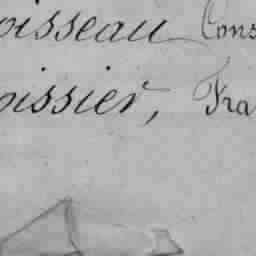 oisseau Cons
oissier, Fra